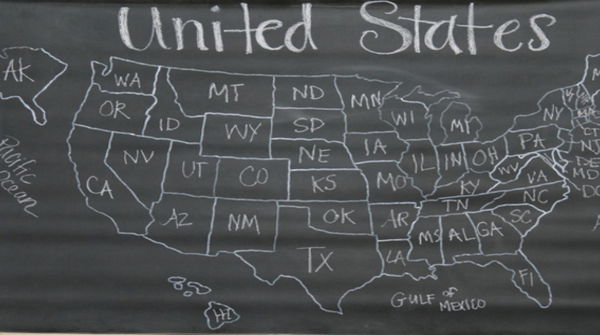 United States
AK
WA
MT
ND
MN
OR
ID
WY
SD
WI
MI
NY
NV
UT
CO
NE
IA
IL
IN
OH
PA
CT
NJ
DE
MD
DC
CA
KS
MO
KY
WV
VA
AZ
NM
OK
AR
TN
NC
SC
TX
LA
MS
AL
GA
FL
HI
Pacific
Ocean
GULF OF
MEXICO